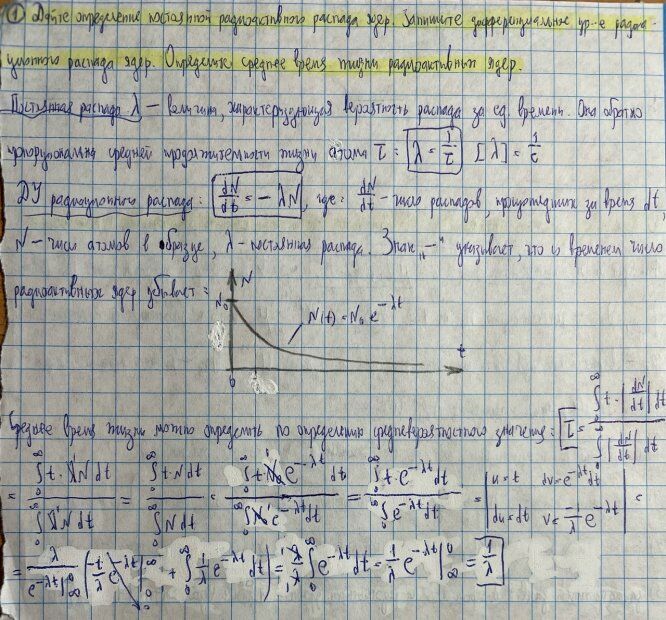 ① Дайте определение постоянной радиоактивного распада ядер. Запишите дифференциальное ур-е радиа-
ционного распада ядер. Определите среднее время жизни радиоактивных ядер.
Постоянная распада λ – величина, характеризующая вероятность распада за ед. времени. Она обратно
пропорциональна средней продолжительности жизни атома τ = λ = 1/τ [λ] = 1/
ДУ радиационного распада: dN/dt = −λN, где: dN/dt – число распадов, произошедших за время dt
N – число атомов в образце, λ – постоянная распада. Знак „−" указывает, что с временем число
радиоактивных ядер убывает:
N
N₀
N(t) = N₀ e^{−λt}
t
0
Среднее время жизни можно определить по определению средневероятностного значения: τ = ∫₀^∞ t·|dN/dt| dt / ∫₀^∞ |dN/dt| dt
= ∫₀^∞ t·λN dt / ∫₀^∞ λN dt = ∫₀^∞ t·N dt / ∫₀^∞ N dt = ∫₀^∞ t·N₀ e^{−λt} dt / ∫₀^∞ N₀ e^{−λt} dt = ∫₀^∞ t·e^{−λt} dt / ∫₀^∞ e^{−λt} dt = | u = t dv = e^{−λt} dt du = dt v = −1/λ e^{−λt} | =
= λ / e^{−λt}|₀^∞ ( −t/λ e^{−λt}|₀^∞ + ∫₀^∞ 1/λ e^{−λt} dt ) = λ/λ ∫₀^∞ e^{−λt} dt = 1/λ e^{−λt}|_∞^0 = 1/λ